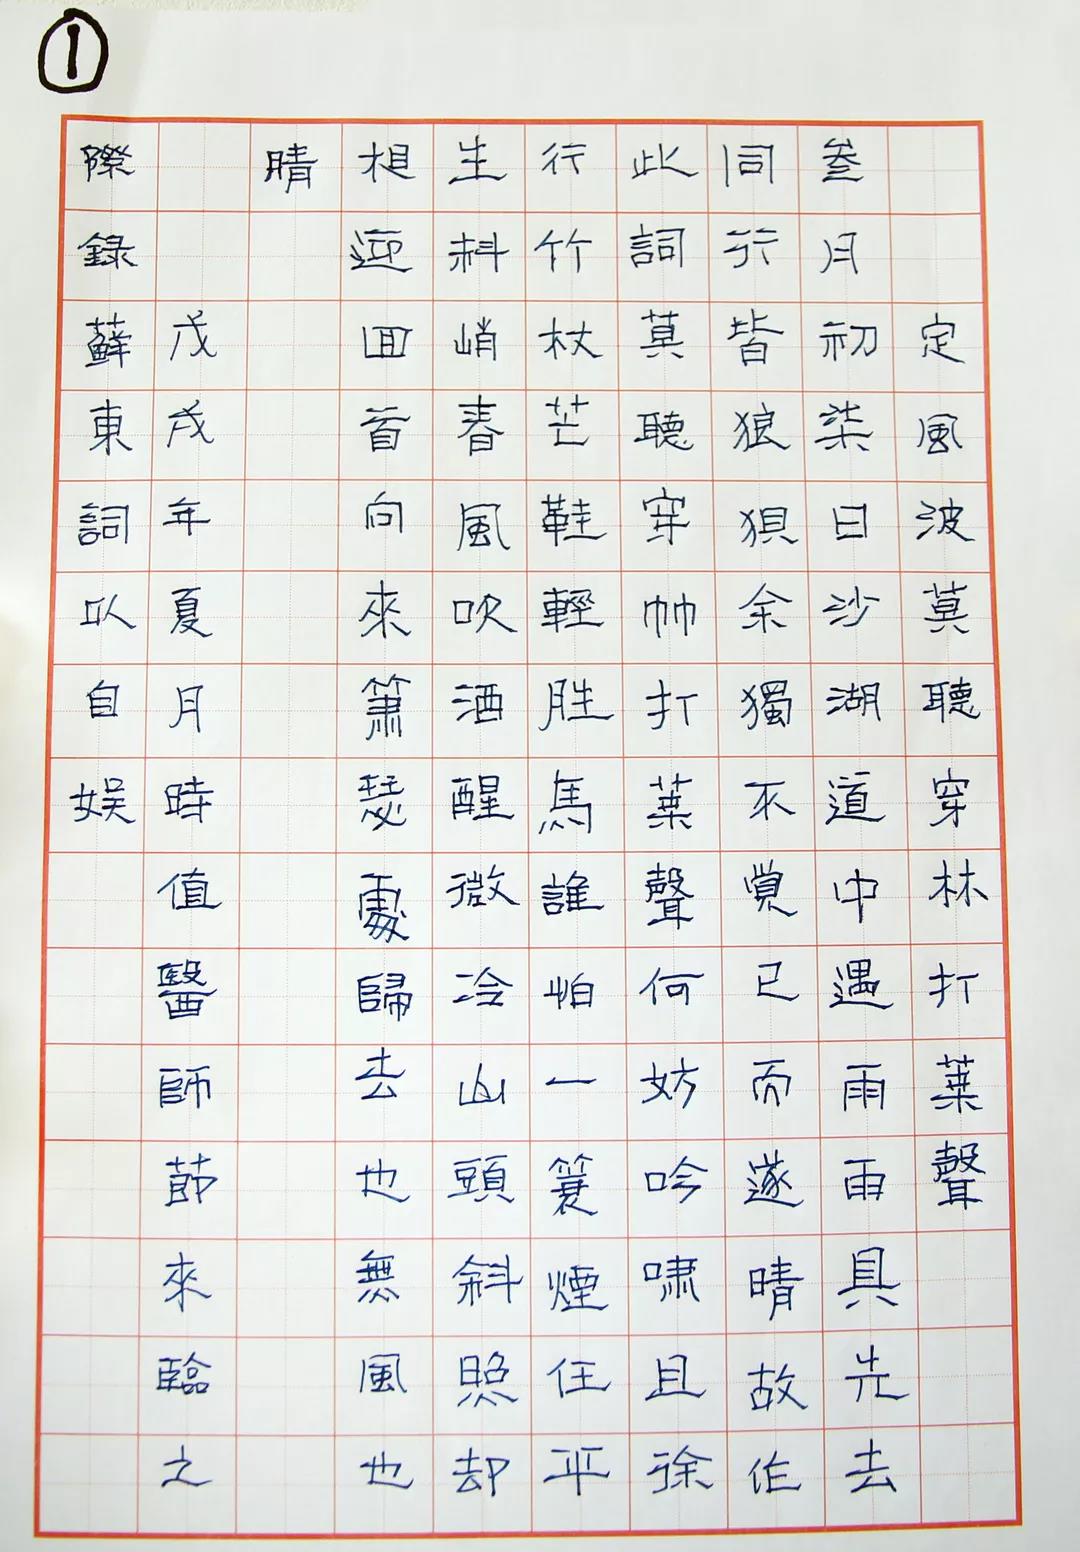 ①
定風波莫聽穿林打葉聲
叁月初柒日沙湖道中遇雨雨具先去
同行皆狼狽余獨不覺已而遂晴故作
此詞莫聽穿林打葉聲何妨吟嘯且徐
行竹杖芒鞋輕胜馬誰怕一簑煙任平
生料峭春風吹酒醒微冷山頭斜照却
相迎回首向來蕭瑟處歸去也無風也
晴
戊戌年夏月時值醫師節來臨之
際録蘇東詞以自娱